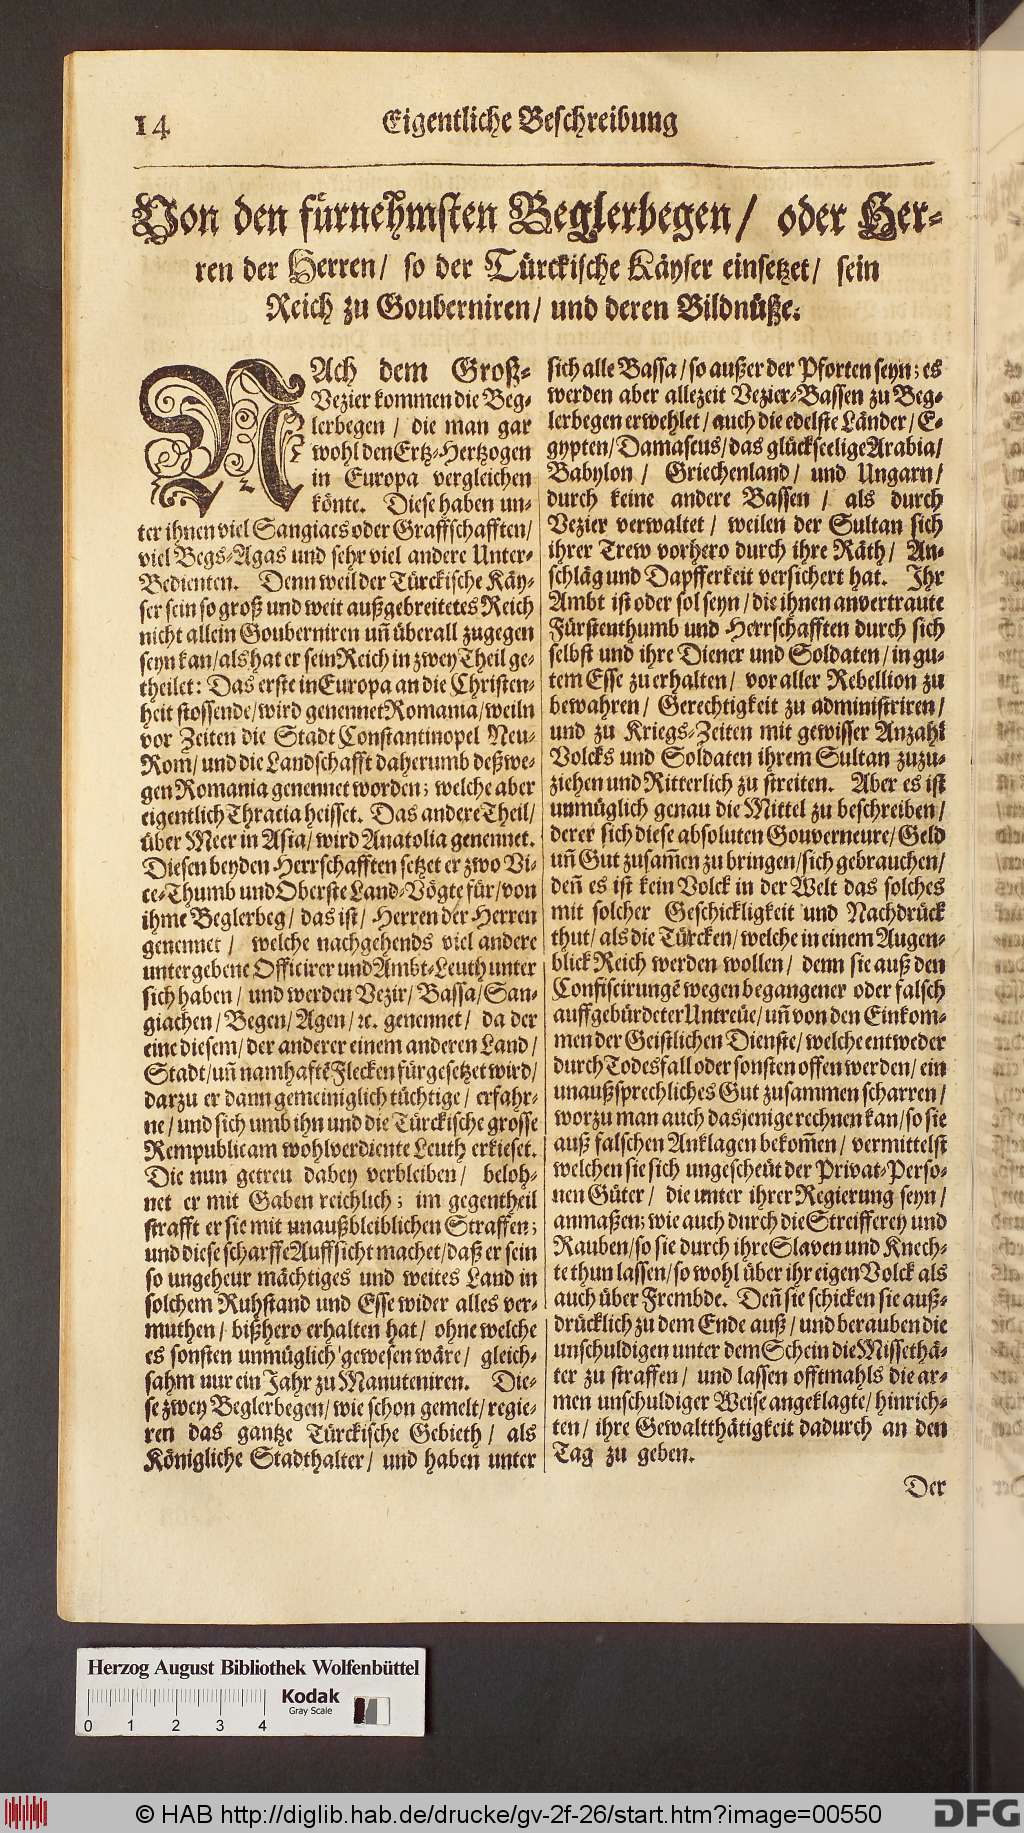 14
Eigentliche Beschreibung
Von den fürnehmsten Beglerbegen/ oder Her-
ren der Herren/ so der Türckische Käyser einsetzet/ sein
Reich zu Gouberniren/ und deren Bildnüße.
NAch dem Groß-
Vezier kommen die Beg-
lerbegen/ die man gar
wohl den Ertz-Hertzogen
in Europa vergleichen
könte. Diese haben un-
ter ihnen viel Sangiacs oder Graffschafften/
viel Begs-Agas und sehr viel andere Unter-
Bedienten. Denn weil der Türckische Käy-
ser sein so groß und weit außgebreitetes Reich
nicht allein Gouberniren uñ überall zugegen
seyn kan/als hat er sein Reich in zwey Theil ge-
theilet: Das erste in Europa an die Christen-
heit stossende/wird genennet Romania/weiln
vor Zeiten die Stadt Constantinopel Neu-
Rom/und die Landschafft daherumb deßwe-
gen Romania genennet worden; welche aber
eigentlich Thracia heisset. Das andere Theil/
über Meer in Asia/wird Anatolia genennet.
Diesen beyden Herrschafften setzet er zwo Vi-
ce-Thumb und Oberste Land-Vögte für/von
ihme Beglerbeg/das ist/ Herren der Herren
genennet/ welche nachgehends viel andere
untergebene Officirer und Ambt-Leuth unter
sich haben/ und werden Vezir/Bassa/San-
giachen/Begen/Agen/ꝛc. genennet/ da der
eine diesem/der anderer einem anderen Land/
Stadt/uñ namhaftẽ Flecken fürgesetzet wird/
darzu er dann gemeiniglich tüchtige/erfahr-
ne/und sich umb ihn und die Türckische grosse
Rempublicam wohlverdiente Leuth erkieset.
Die nun getreu dabey verbleiben/ beloh-
net er mit Gaben reichlich; im gegentheil
strafft er sie mit unaußbleiblichen Straffen;
und diese scharffe Auffsicht machet/daß er sein
so ungeheur mächtiges und weites Land in
solchem Ruhstand und Esse wider alles ver-
muthen/ bißhero erhalten hat/ ohne welche
es sonsten unmüglich gewesen wäre/ gleich-
sahm nur ein Jahr zu Manuteniren. Die-
se zwey Beglerbegen/wie schon gemelt/regie-
ren das gantze Türckische Gebieth/ als
Königliche Stadthalter/ und haben unter
sich alle Bassa/so außer der Pforten seyn; es
werden aber allezeit Vezier-Bassen zu Beg-
lerbegen erwehlet/auch die edelste Länder/E-
gypten/Damascus/das glückseelige Arabia/
Babylon/ Griechenland/ und Ungarn/
durch keine andere Bassen/ als durch
Vezier verwaltet/ weilen der Sultan sich
ihrer Trew vorhero durch ihre Räth/ An-
schläg und Dapfferkeit versichert hat. Ihr
Ambt ist oder sol seyn/die ihnen anvertraute
Fürstenthumb und Herrschafften durch sich
selbst und ihre Diener und Soldaten/in gu-
tem Esse zu erhalten/ vor aller Rebellion zu
bewahren/ Gerechtigkeit zu administriren/
und zu Kriegs-Zeiten mit gewisser Anzahl
Volcks und Soldaten ihrem Sultan zuzu-
ziehen und Ritterlich zu streiten. Aber es ist
unmüglich genau die Mittel zu beschreiben/
derer sich diese absoluten Gouverneure/Geld
uñ Gut zusam̃en zu bringen/sich gebrauchen/
deñ es ist kein Volck in der Welt das solches
mit solcher Geschickligkeit und Nachdrück
thut/als die Türcken/welche in einem Augen-
blick Reich werden wollen/ denn sie auß den
Confiscirungẽ wegen begangener oder falsch
auffgebürdeter Untreüe/uñ von den Einkom-
men der Geistlichen Dienste/welche entweder
durch Todesfall oder sonsten offen werden/ein
unaußsprechliches Gut zusammen scharren/
worzu man auch dasjenige rechnen kan/so sie
auß falschen Anklagen bekom̃en/vermittelst
welchen sie sich ungescheüt der Privat-Perso-
nen Güter/ die unter ihrer Regierung seyn/
anmaßen; wie auch durch die Streifferey und
Rauben/so sie durch ihre Slaven und Knech-
te thun lassen/so wohl über ihr eigen Volck als
auch über Frembde. Deñ sie schicken sie auß-
drücklich zu dem Ende auß/und berauben die
unschuldigen unter dem Schein die Missethä-
ter zu straffen/ und lassen offtmahls die ar-
men unschuldiger Weise angeklagte/hinrich-
ten/ihre Gewaltthätigkeit dadurch an den
Tag zu geben.
Der
Herzog August Bibliothek Wolfenbüttel
Kodak
Gray Scale
0 1 2 3 4
© HAB http://diglib.hab.de/drucke/gv-2f-26/start.htm?image=00550
DFG